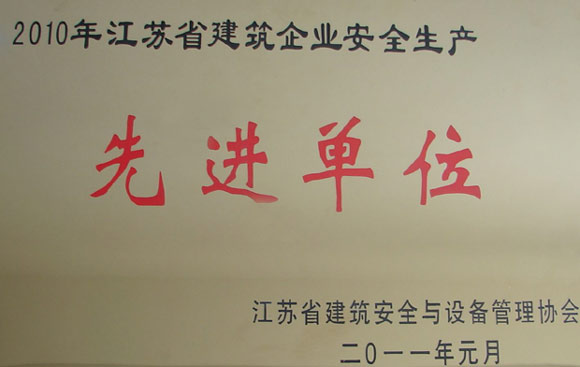 2010年江苏省建筑企业安全生产
先进单位
江苏省建筑安全与设备管理协会
二〇一一年元月